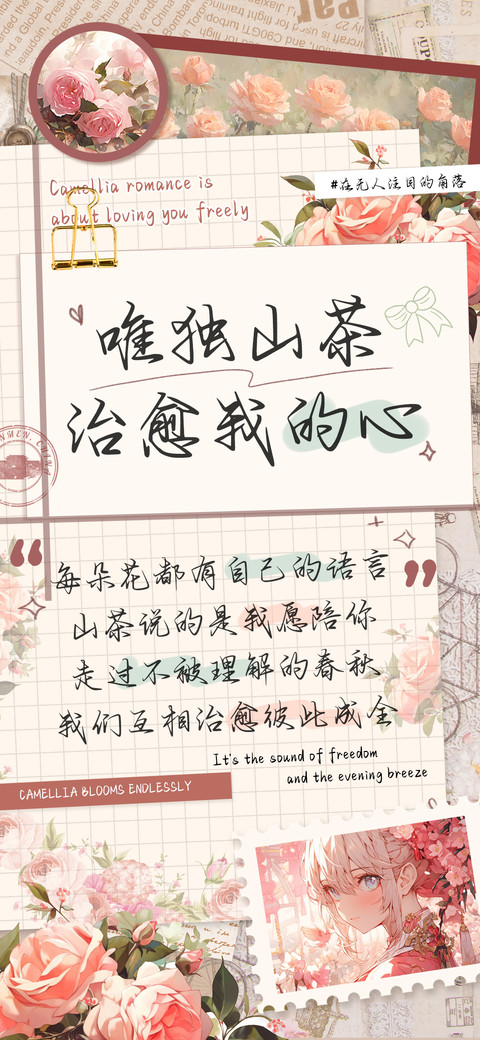 Camellia romance is
about loving you freely
#在无人注目的角落
唯独山茶
治愈我的心
“
每朵花都有自己的语言
山茶说的是我愿陪你
走过不被理解的春秋
我们互相治愈彼此成全
”
It's the sound of freedom
and the evening breeze
CAMELLIA BLOOMS ENDLESSLY